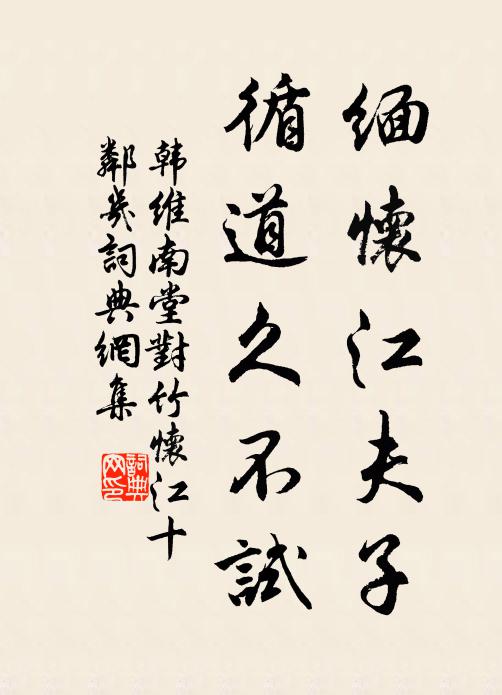 緬懷江夫子
循道久不試
韩維南堂對竹懷江十
鄰幾詞典網集
詞典
网印